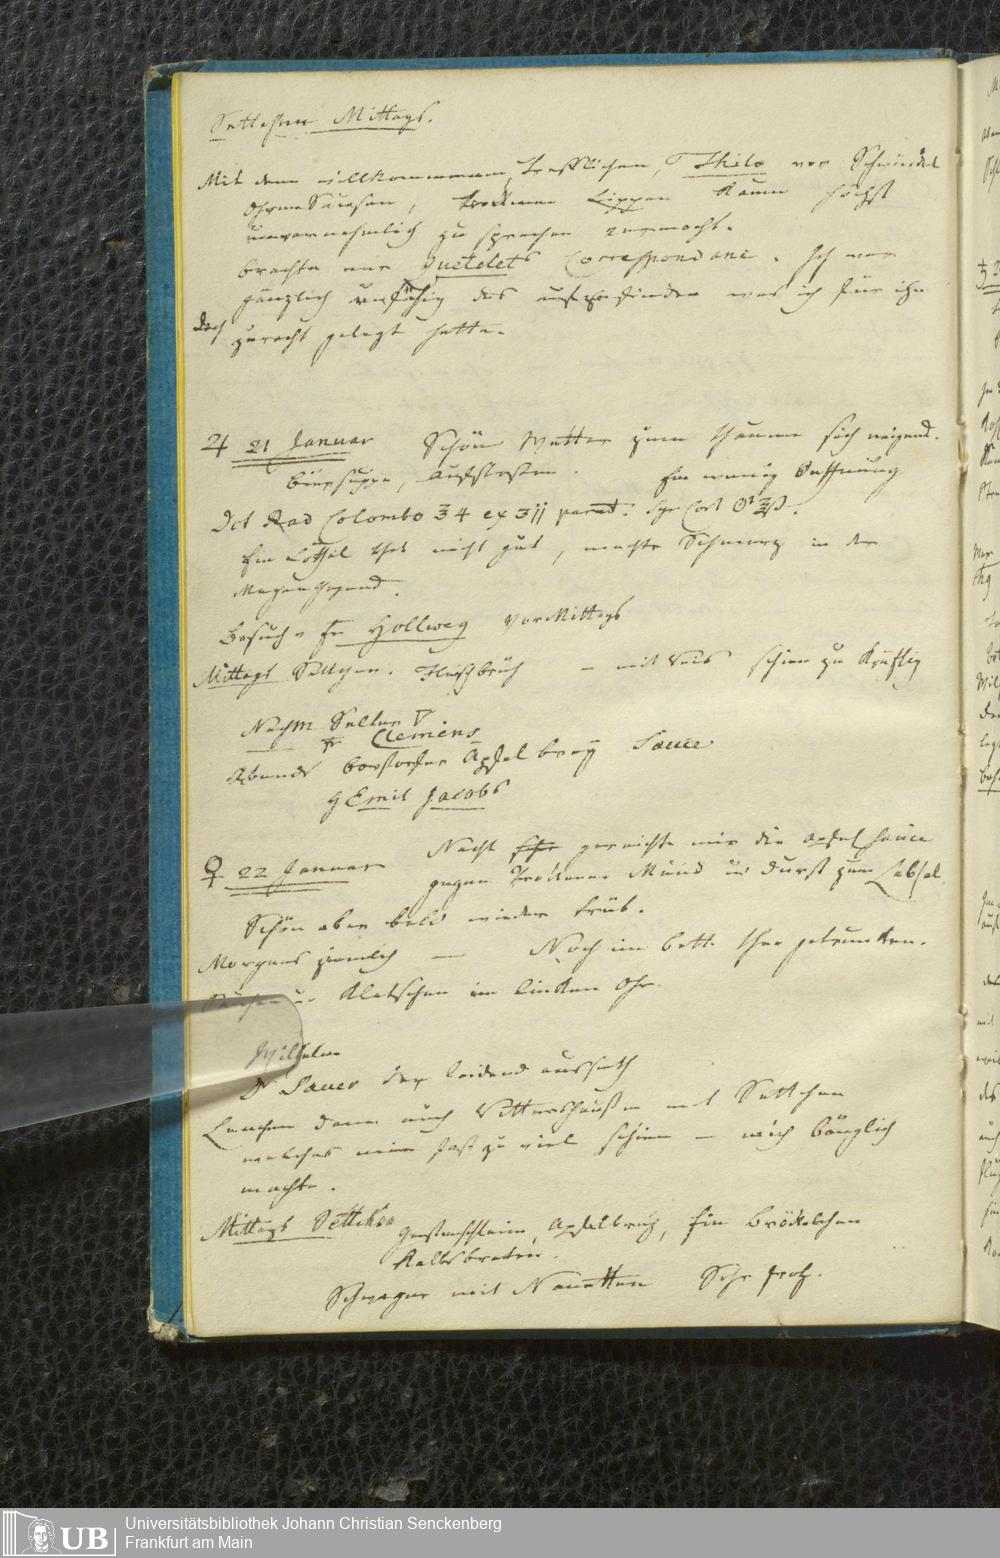 Settchen Mittags.
Mit dem vollkommenen, trefflichen, Thilo vor Schwindel
Ohrensausen, trocknen Lippen kaum höchst
unvernehmlich zu sprechen vermocht.
brachte mir Quetelets Correspondanc. Ich war
gänzlich unfähig das aufzufinden was ich für ihn
doch zurecht gelegt hatte.
♃ 21 Januar Schön Wetter zum thauen sich neigend.
Biersuppe, Aufstossen. Ein wenig Oeffnung
Dct Rad Colombo ʒ4
Ein Löffel that nicht gut, machte Schmerz in der
Magengegend.
Besuch Fr Hollweg VorMittags
Mittags Settchen. Fleischbrüh – mit Reis schien zu kräftig
NachM Selter
Fr Clemens
Abends Borstorfer Apfel brey Sauce
H Emil Jacobs
♀ 22 Januar Nacht gereichte mir die Apfel sauce
gegen trockenen Mund u Durst zum Labsal.
Schön aber bald wieder trüb.
Morgens ziemlich — Noch im bett. thee getrunken.
Klatschen im linken Ohr.
Wilhelm
Dr Sauer der leidend aussieht
Lenchen dann auch mit Settchen
welches mir fast zu viel schien – mich bänglich
machte.
Mittags Settchen Gerstenschleim, Apfelbrey, Ein bröckelchen
Kalbsbraten.
Schwager mit Nanetten Sehr
Universitätsbibliothek Johann Christian Senckenberg
Frankfurt am Main
UB